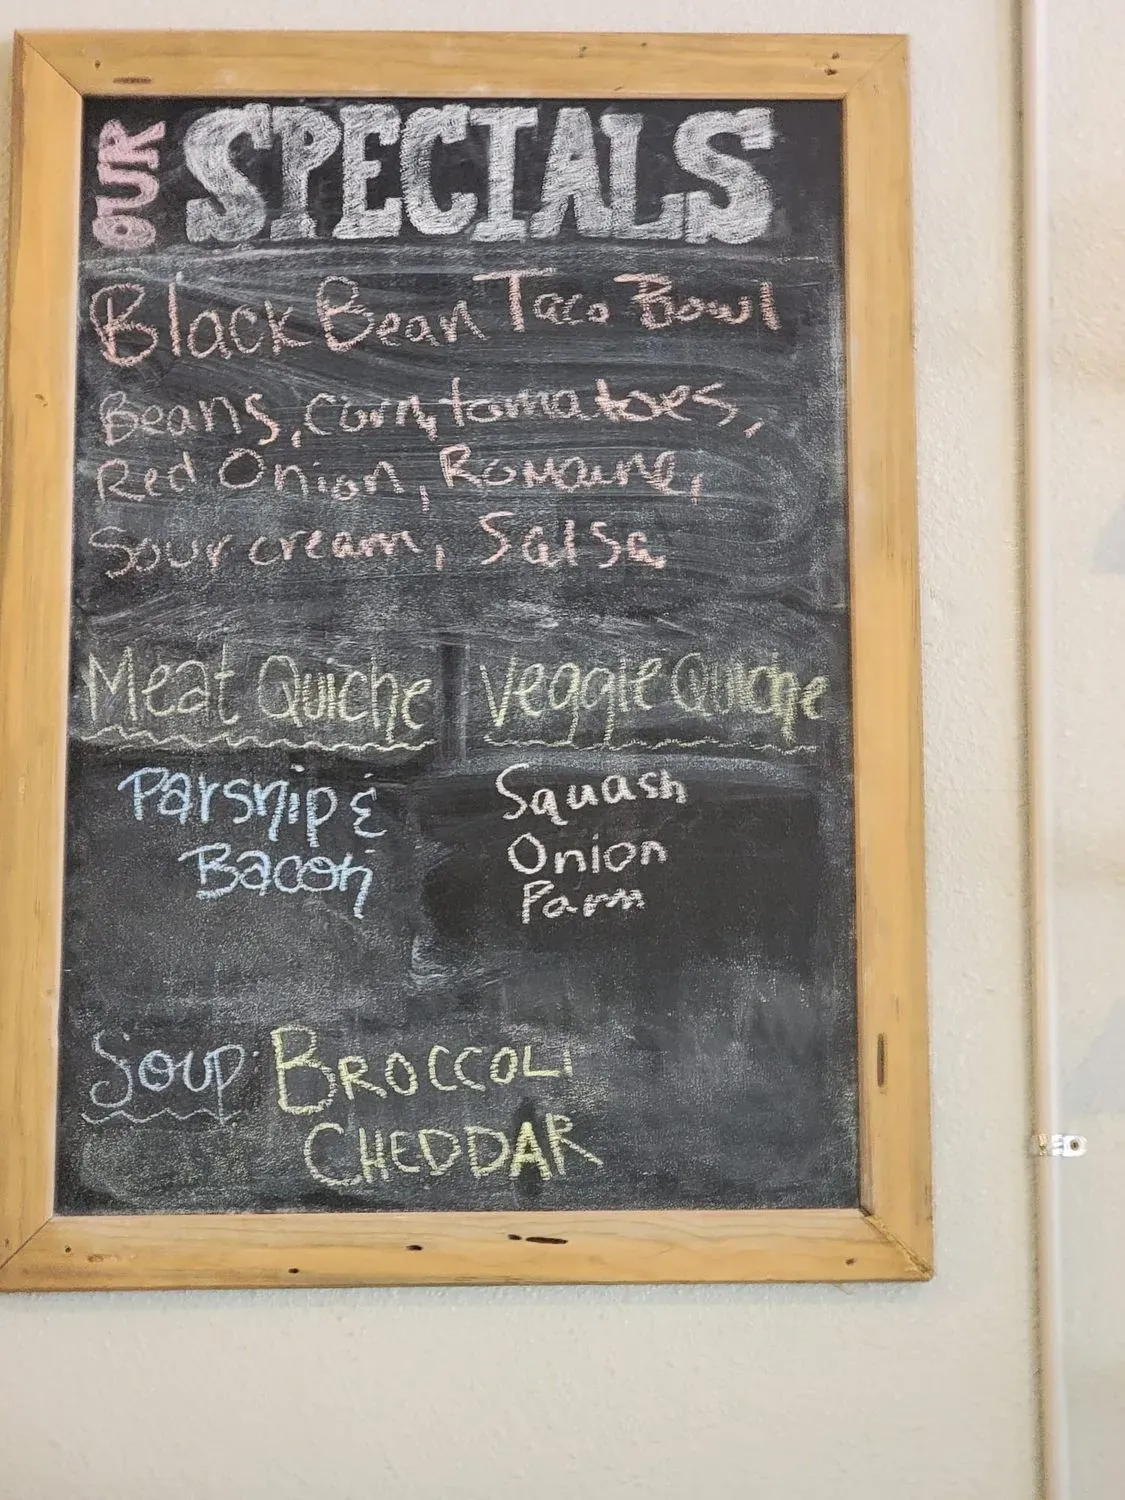 OUR SPECIALS
Black Bean Taco Bowl
Beans, corn, tomatoes,
Red Onion, Romaine,
Sour cream, Salsa
Meat Quiche
Parsnip &
Bacon
Veggie Quiche
Squash
Onion
Parm
Soup: BROCCOLI
CHEDDAR